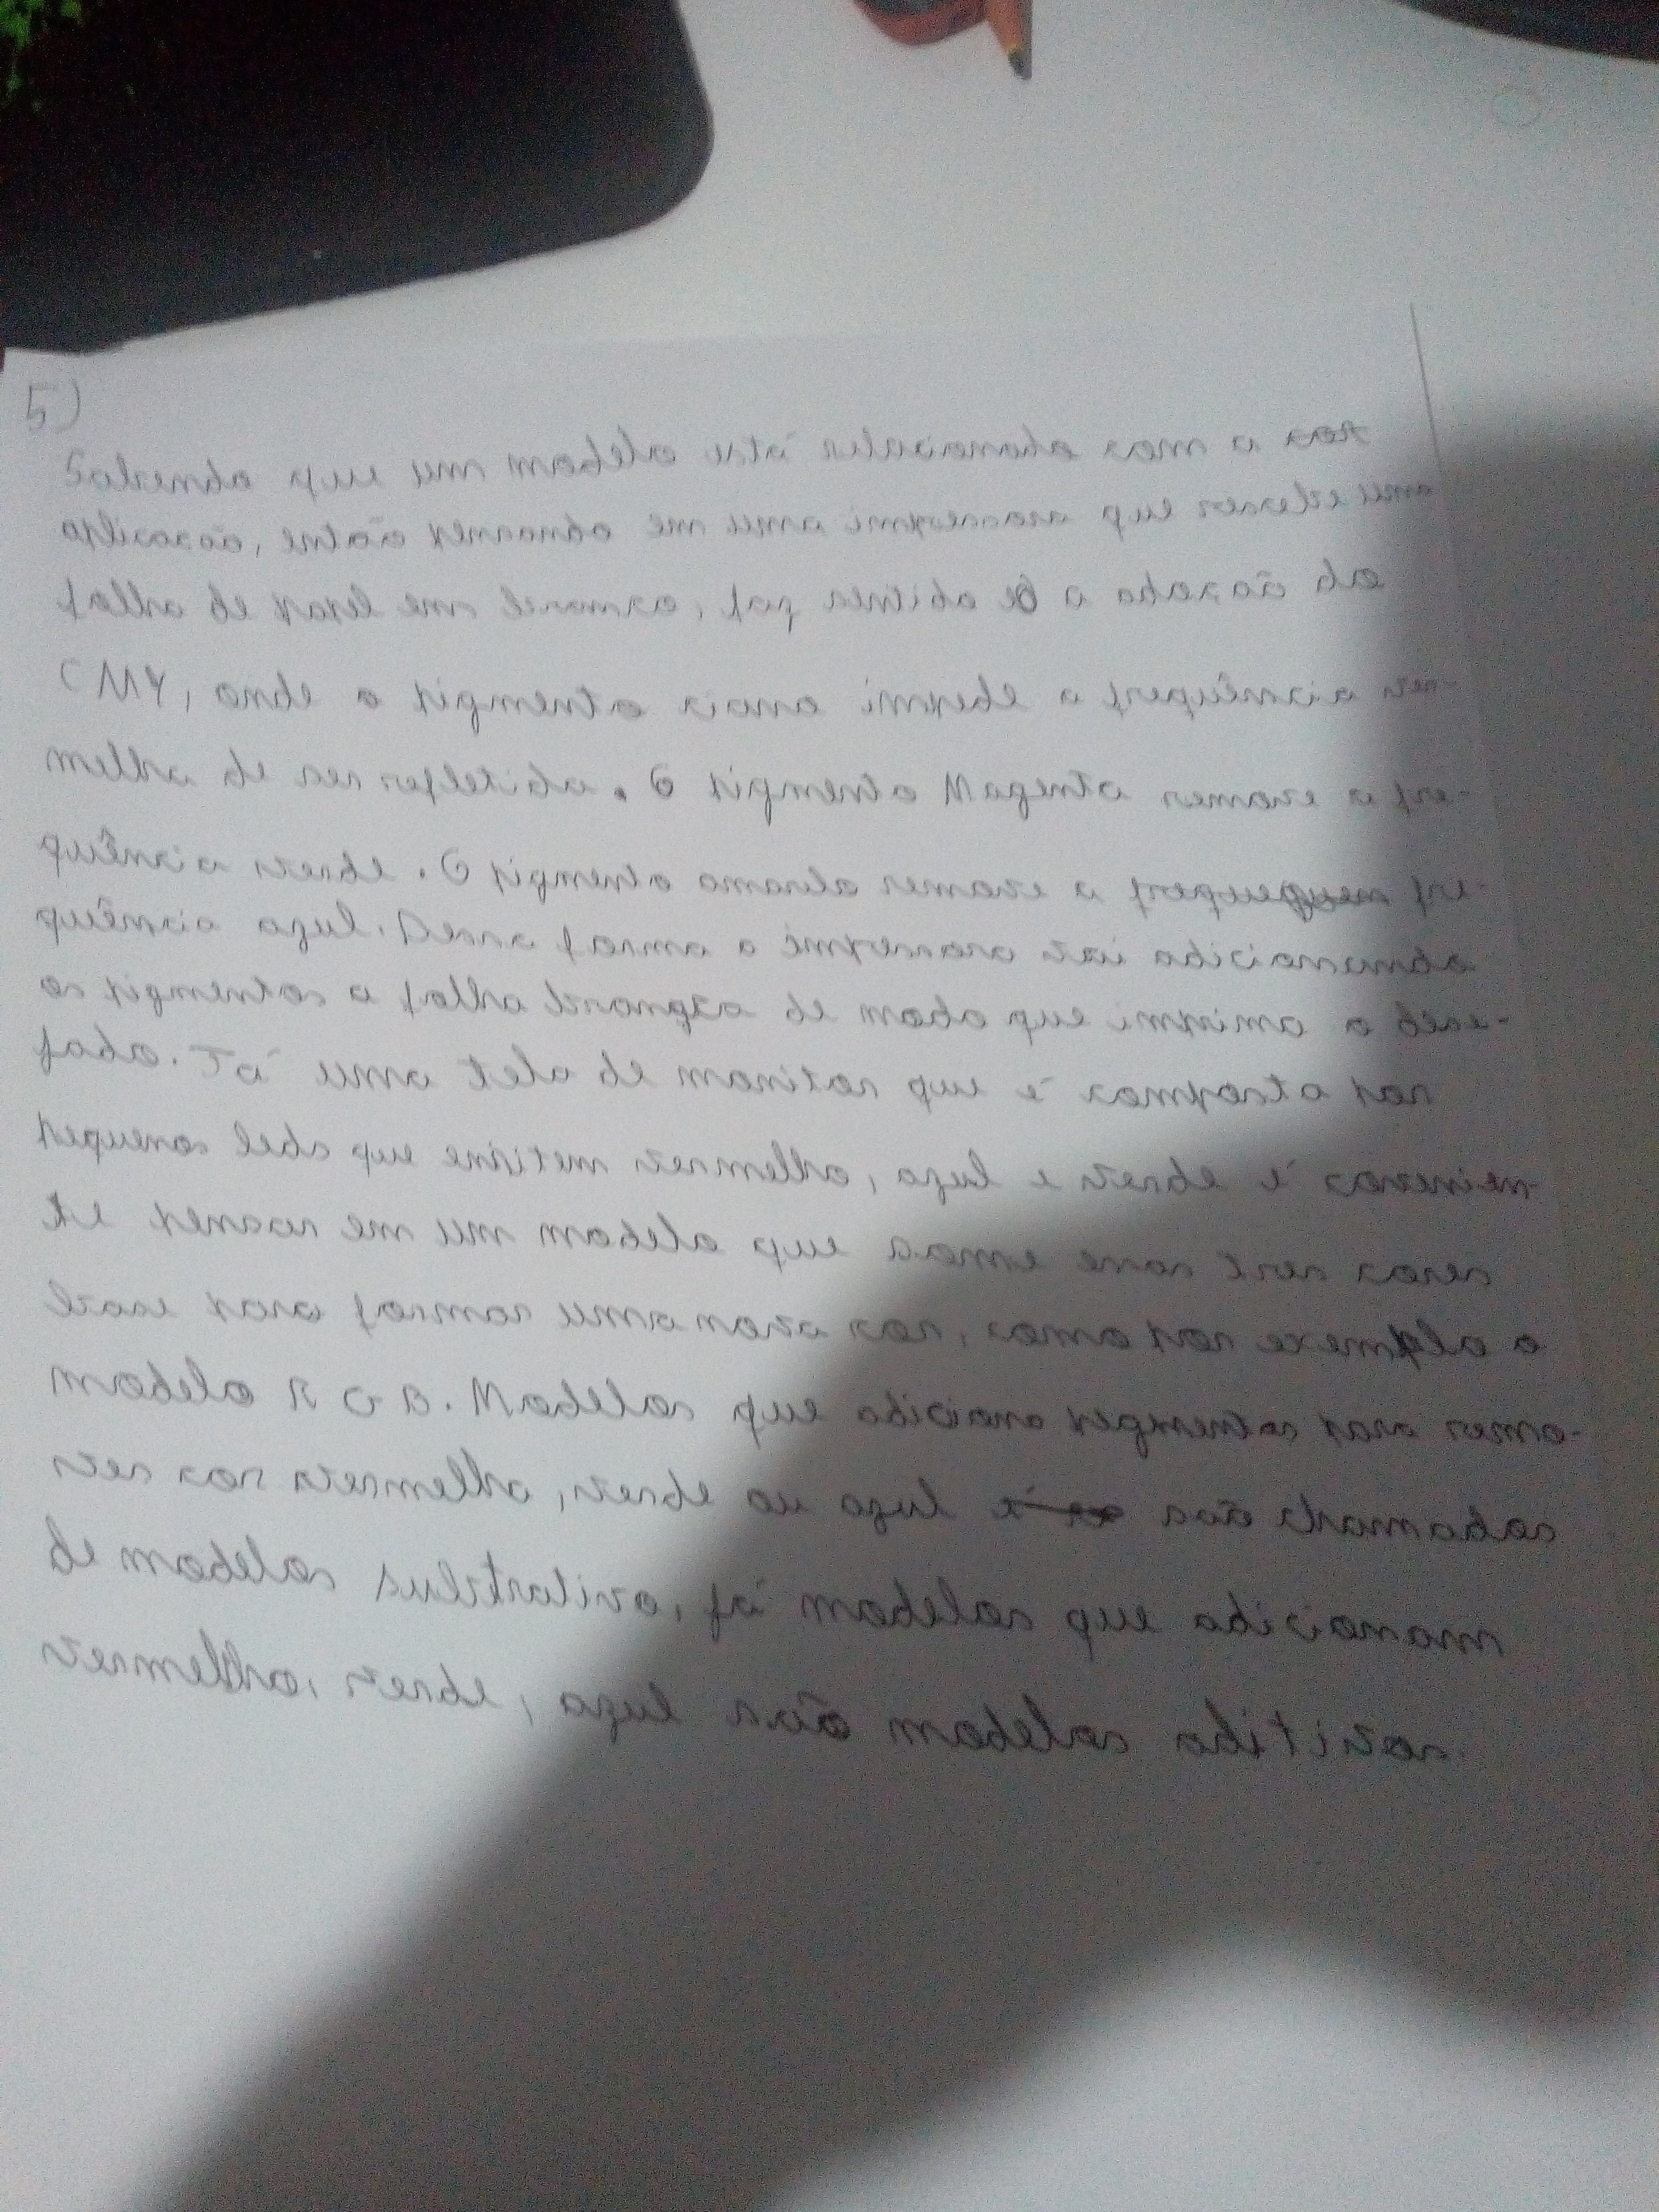 5)
Sabendo que um modelo está relacionado com a cor
aplicação, então pensando em uma impressora que revele uma
folha de papel em branco, faz sentido a adoção do
CMY, onde o pigmento ciano impede a frequência ver-
melha de ser refletida. O pigmento Magenta remove a fre-
quência verde. O pigmento amarelo remove a fre-
quência azul. Dessa forma a impressora vai adicionando
os pigmentos a folha branca de modo que imprima o dese-
jado. Já uma tela de monitor que é composta por
pequenos leds que emitem vermelho, azul e verde é convenien-
te se pensar em um modelo que some essas três cores
base para formar uma nova cor, como por exemplo o
modelo RGB. Modelos que adiciona pigmentos para remo-
ver cor vermelha, verde ou azul são chamados
de modelos subtrativo, já modelos que adicionam
vermelho, verde, azul são modelos aditivos